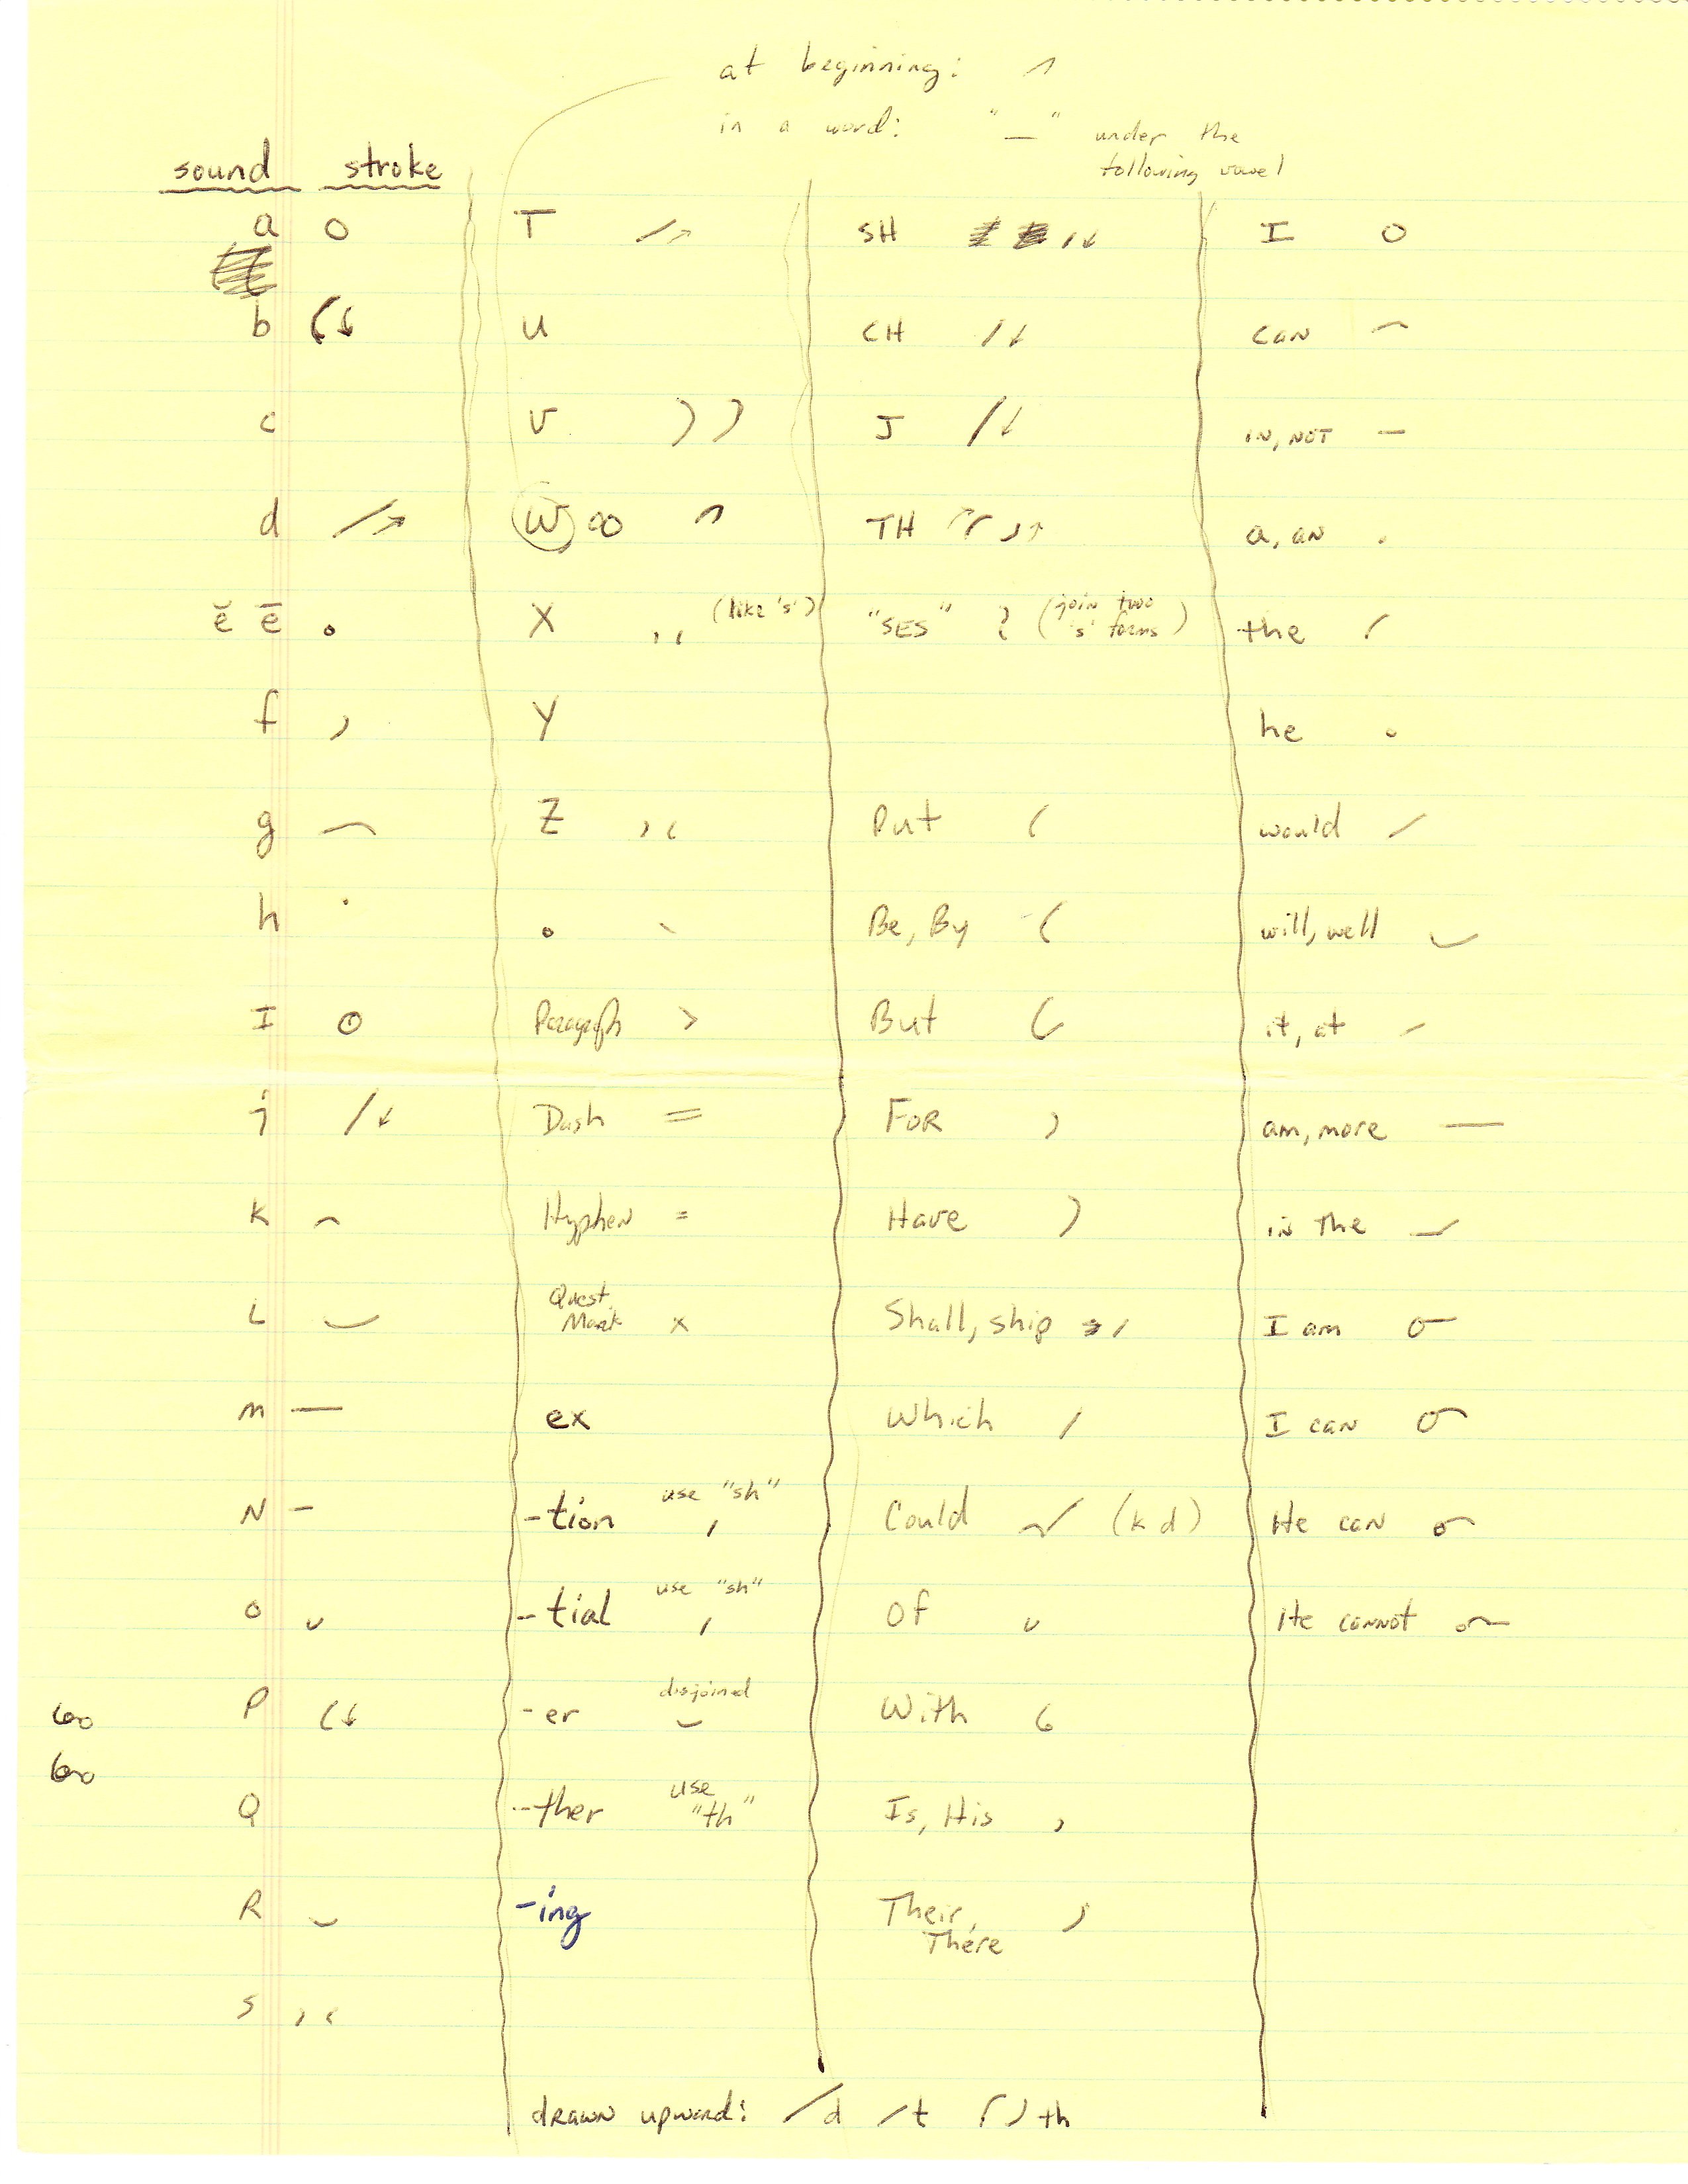 at beginning:
in a word: "—" under the
following vowel
sound stroke
a
b
c
d
ĕ ē
f
g
h
I
j
K
L
m
N
O
P
Q
R
S
T
u
v
W
X (like 's')
Y
Z
.
Paragraph >
Dash =
Hyphen =
Quest.
Mark x
ex
-tion use "sh"
-tial use "sh"
-er disjoined
-ther use
"th"
-ing
SH
CH
J
TH
"SES" (join two
's' forms)
Put
Be, By
But
FOR
Have
Shall, ship
Which
Could (kd)
Of
With
Is, His
Their,
There
I
CAN
IN, NOT
a, an
the
he
would
will, well
it, at
am, more
in the
I am
I can
He can
He cannot
drawn upward: d t th